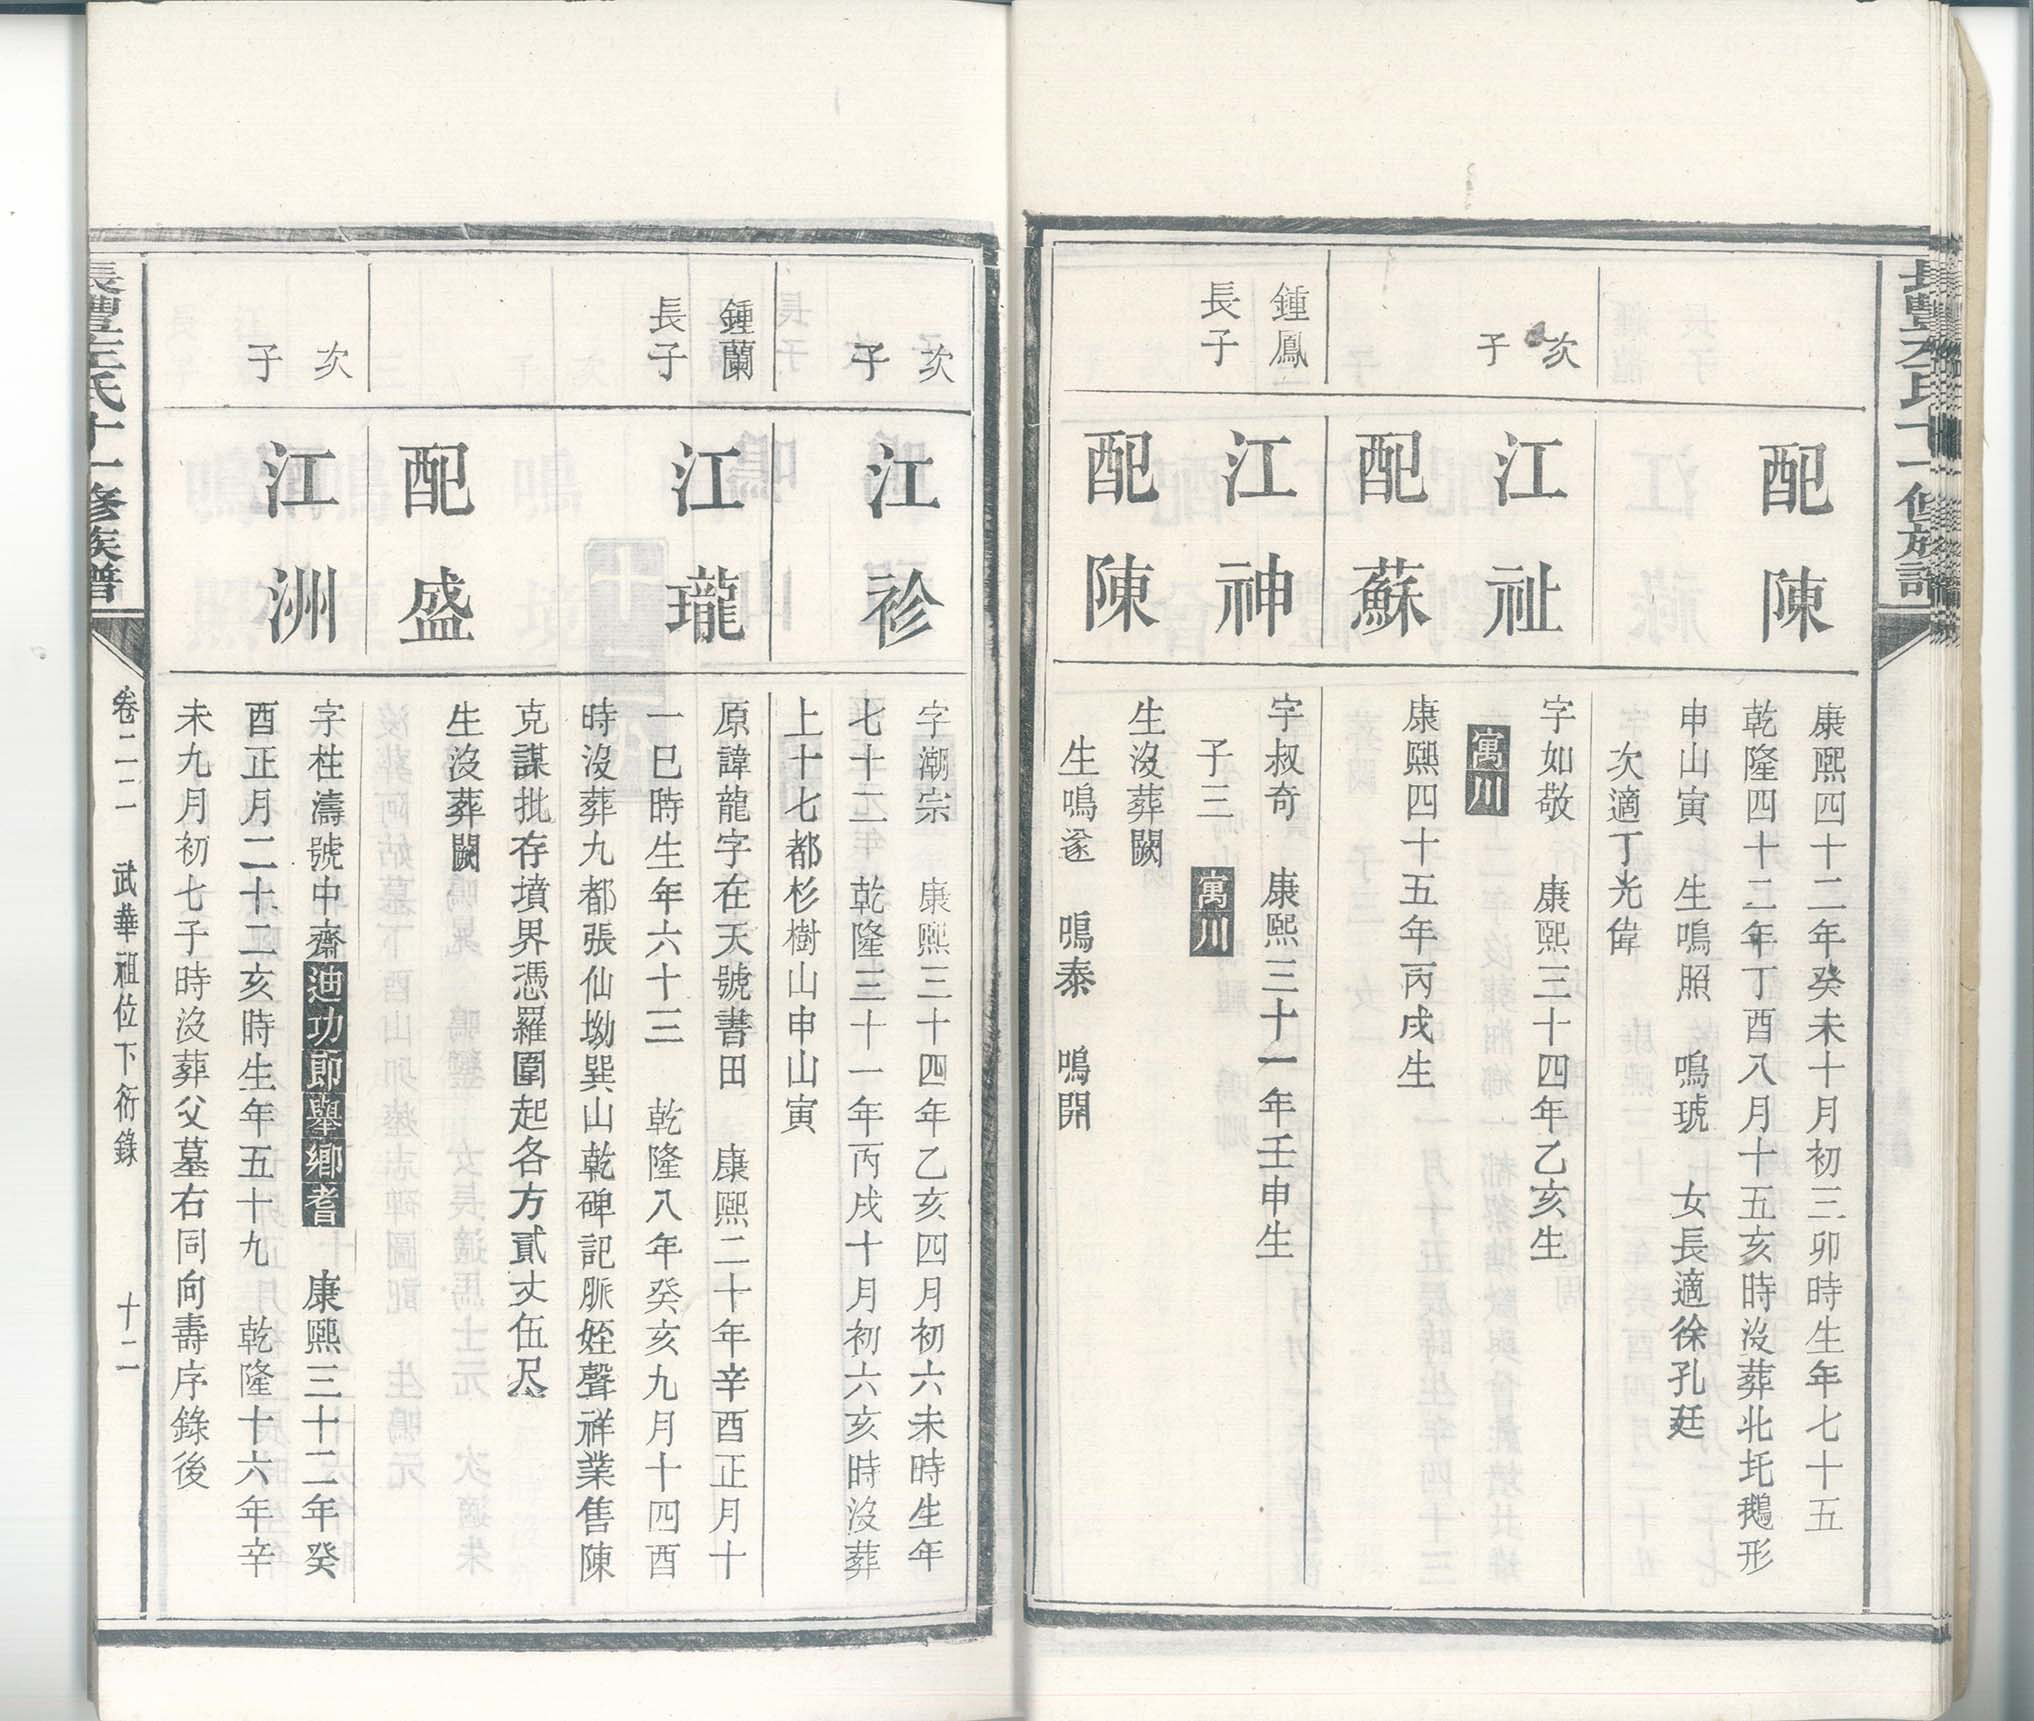 配陳
康熙四十二年癸未十月初三卯時生年七十五
乾隆四十二年丁酉八月十五亥時沒葬北圫鵝形
申山寅　生鳴照　鳴琥　女長適徐孔廷
次適丁光偉
次子
江祉
字如敬　康熙三十四年乙亥生
寓川
配蘇
康熙四十五年丙戌生
鍾鳳
長子
江神
字叔奇　康熙三十一年壬申生
子三　寓川
配陳
生沒葬闕
生鳴遂　鳴泰　鳴開
次子
江袗
字潮宗　康熙三十四年乙亥四月初六未時生年
七十二　乾隆三十一年丙戌十月初六亥時沒葬
上十七都杉樹山申山寅
鍾蘭
長子
江瓏
原諱龍字在天號書田　康熙二十年辛酉正月十
一巳時生年六十三　乾隆八年癸亥九月十四酉
時沒葬九都張仙坳巽山乾碑記脈姪聲祥業售陳
克謀批存墳界憑羅圍起各方貳丈伍尺
配盛
生沒葬闕
次子
江洲
字柱濤號中齋迪功郎舉鄉耆　康熙三十二年癸
酉正月二十二亥時生年五十九　乾隆十六年辛
未九月初七子時沒葬父墓右同向壽序錄後
氏十一修族譜
卷二二　武華祖位下衍錄　十二